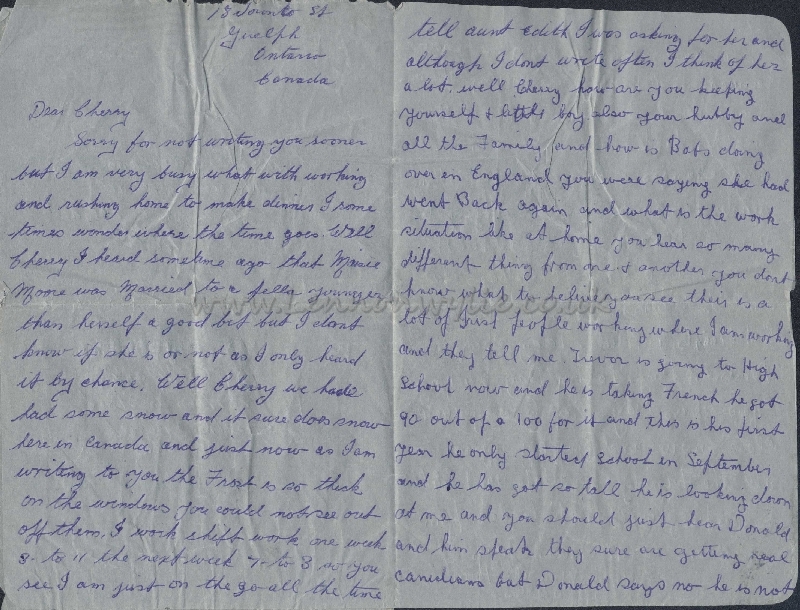 15 Toronto St
Guelph
Ontario
Canada
Dear Cherry
Sorry for not writing you sooner
but I am very busy what with working
and rushing home to make dinner I some
times wonder where the time goes. Well
Cherry I heard sometime ago that
was Married to a fella younger
than herself a good bit but I dont
know if she is or not as I only heard
it by chance. Well Cherry we have
had some snow and it sure does snow
here in Canada and just now as I am
writing to you the Frost is so thick
on the windows you could not see out
off them. I work shift work one week
to 11 the next week 7 to 3 so you
see I am just on the go all the time
tell aunt Edith I was asking for her and
although I dont write often I think of her
a lot. well Cherry how are you keeping
yourself & little boy also your hubby and
all the Family and how is Babs doing
over in England you were saying she had
went Back again and what is the work
situation like at home you hear so many
different thing from one & another you dont
know what to you see their is a
lot of people working where I am working
and they tell me. Trevor is going to High
School now and he is taking French he got
90 out of a 100 for it and this is his first
year he only started School in September
and he has got so tall he is looking down
at me and you should just hear Donald
and him speak they sure are getting real
Canadians but Donald says no he is not